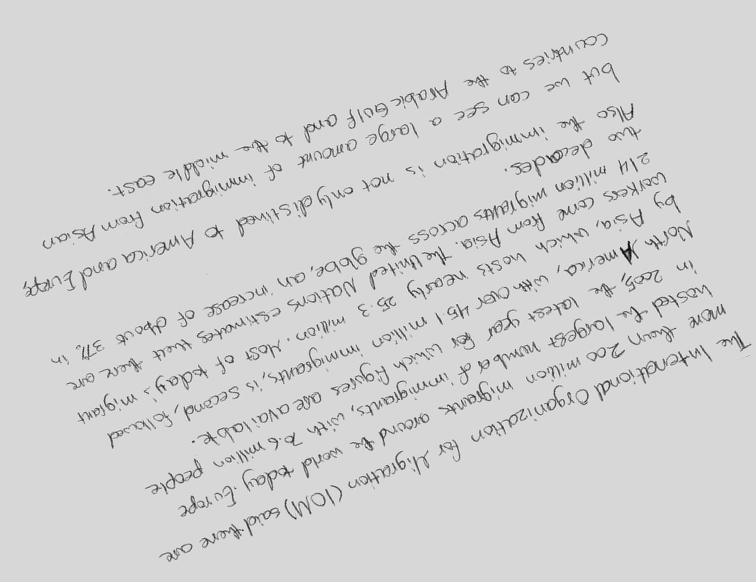 The Interational Organization for Migration (IOM) said there are
more then 200 million migrants around the world today. Europe
hosted the largest number of immigrants, with 70.6 million people
in 2005, the latest year for which figures are available.
North America, with over 451 million immigrants, is, second, followed
by Asia, which hosts nearly 25.3 million. Most of today's migrant
workers come from Asia. The United Nations estimates that there are
214 million migrants across the globe, an increase of about 37% in
two decades.
Also the immigration is not only distined to America and Europe,
but we can see a large amount of immigration from Asian
countries to the Arabic Gulf and to the middle east.